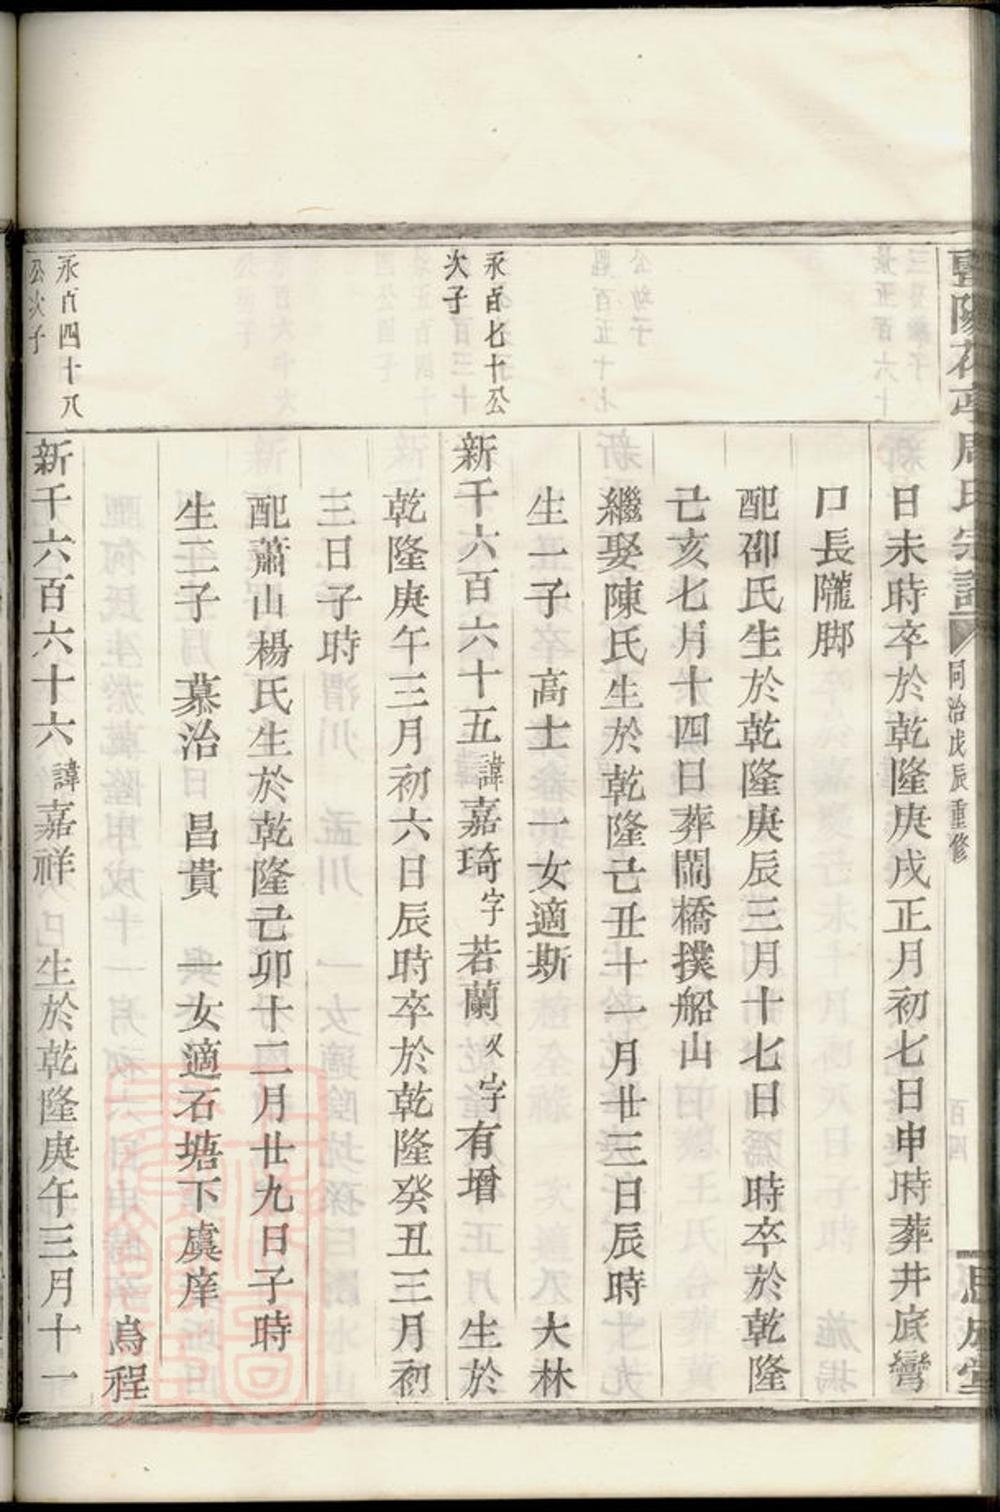 暨陽花亭周氏宗譜 同治戊辰重修 思成堂
日未時卒於乾隆庚戌正月初七日申時葬井底彎
口長隴脚
配邵氏生於乾隆庚辰三月十七日 時卒於乾隆
己亥七月十四日葬閙橋撲船山
繼娶陳氏生於乾隆己丑十一月廿三日辰時
生一子 高士 一女適斯 大林
永百七十公
次子
新千六百六十五諱嘉琦字若蘭又字有增 生於
乾隆庚午三月初六日辰時卒於乾隆癸丑三月初
三日子時
配蕭山楊氏生於乾隆己卯十二月廿九日子時
生二子 慕治 昌貴 一女適石塘下虞庠
烏程
永百四十八
公次子
新千六百六十六諱嘉祥 生於乾隆庚午三月十一